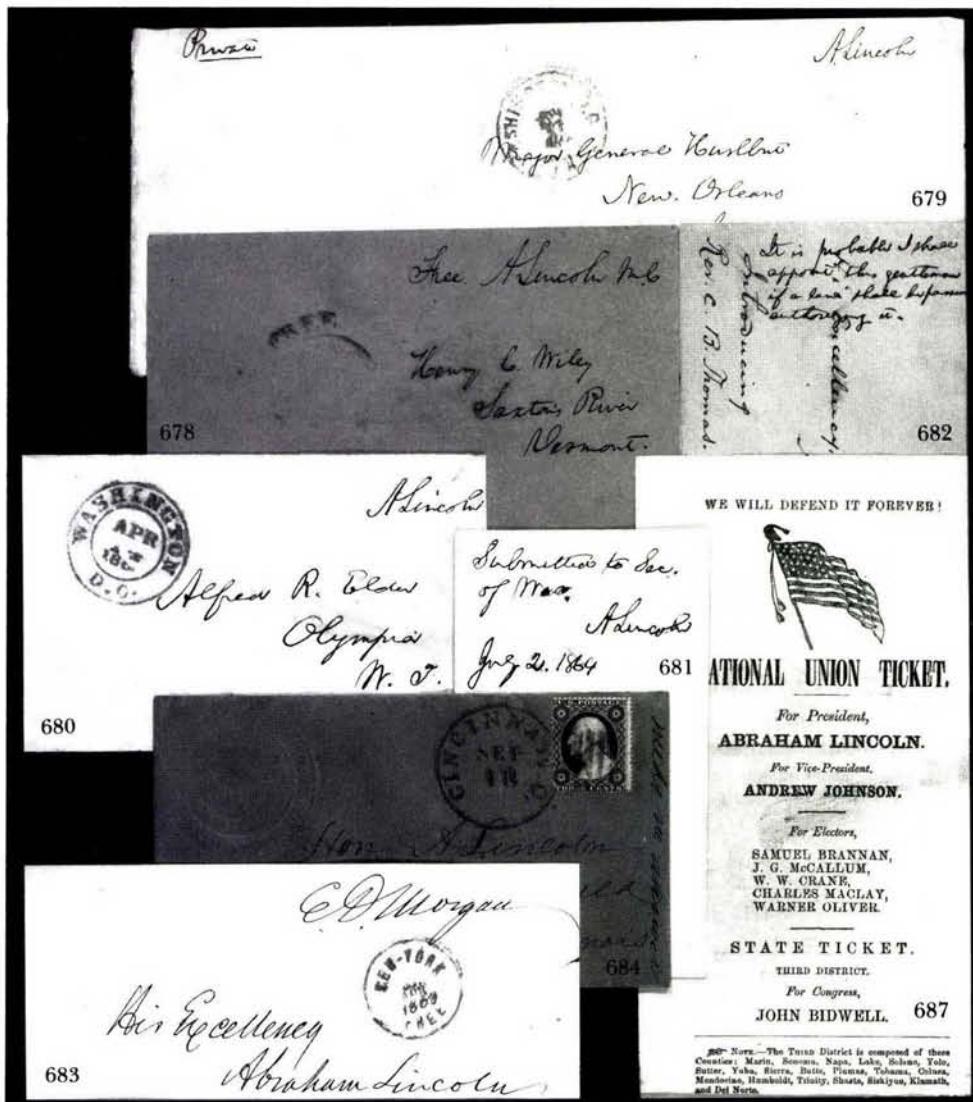 Private
A Lincoln
Major General Hurlbut
New. Orleans
679
Free. A Lincoln M.C
FREE
Henry C. Wiley
Saxtons River
Vermont.
678
It is probable I shall
appoint this gentleman
if a law shall be passed
authorizing it.
Excellency,
introducing
Rev. C. B. Thomas.
682
WASHINGTON
APR
D.C.
A Lincoln
Alfred R. Elder
Olympia
W. T.
680
Submitted to Sec.
of War.
A Lincoln
July 2. 1864
681
CINCINNATI O.
SEP
18
U.S. POSTAGE
Hon A Lincoln
684
E D Morgan
NEW-YORK
1863
FREE
His Excellency
Abraham Lincoln
683
WE WILL DEFEND IT FOREVER!
ATIONAL UNION TICKET.
For President,
ABRAHAM LINCOLN.
For Vice-President,
ANDREW JOHNSON.
For Electors,
SAMUEL BRANNAN,
J. G. McCALLUM,
W. W. CRANE,
CHARLES MACLAY,
WARNER OLIVER.
STATE TICKET.
THIRD DISTRICT.
For Congress,
JOHN BIDWELL.
687
NOTE.—The THIRD District is composed of these
Counties: Marin, Sonoma, Napa, Lake, Solano, Yolo,
Sutter, Yuba, Sierra, Butte, Plumas, Tehama, Colusa,
Mendocino, Humboldt, Trinity, Shasta, Siskiyou, Klamath,
and Del Norte.